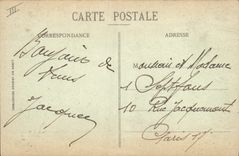 III
CARTE POSTALE
CORRESPONDANCE
ADRESSE
Bonjour de
tous
Jacques
Monsieur et Madame
10 Rue Jacquemont
Paris 17